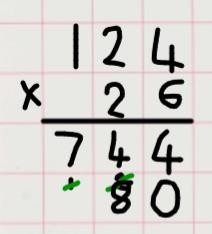 124
x 26
744
80